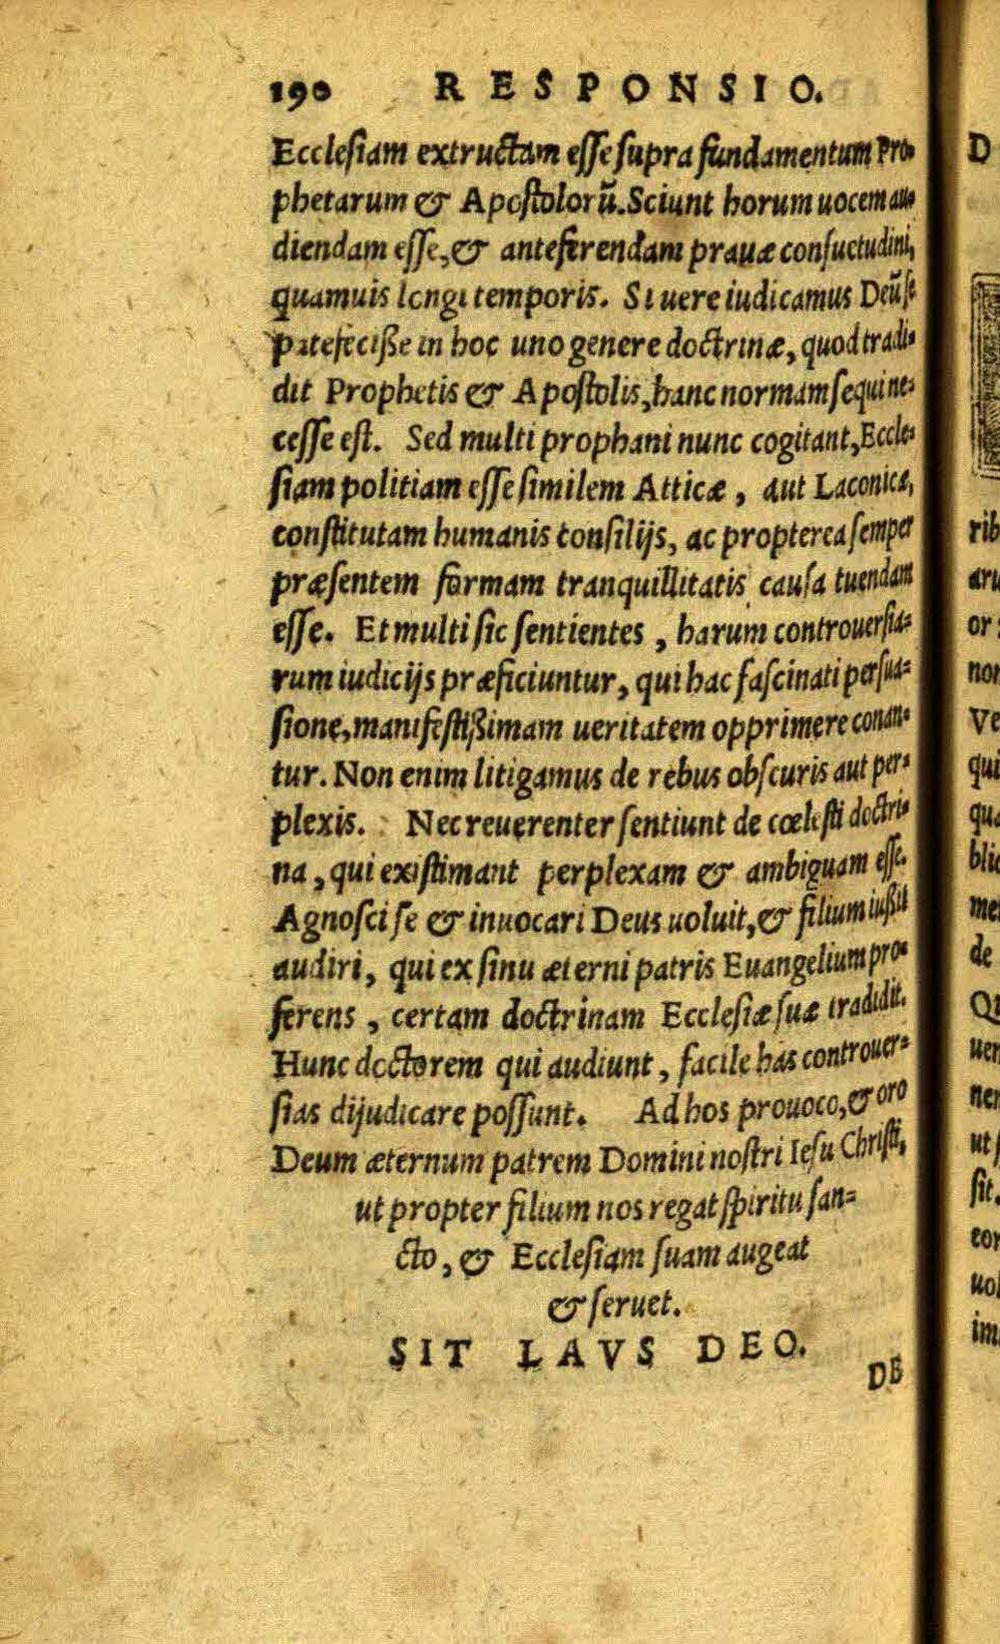 190 RESPONSIO.
Ecclesiam extructam esse supra fundamentum Pro=
phetarum & Apostolorũ. Sciunt horum uocem au=
diendam esse, & anteferendam prauæ consuetudini,
quamuis longi temporis. Si uere iudicamus Deũ se
patefecisse in hoc uno genere doctrinæ, quod tradi=
dit Prophetis & Apostolis, hanc normam sequi ne=
cesse est. Sed multi prophani nunc cogitant, Eccle=
siam politiam esse similem Atticæ, aut Laconicæ,
constitutam humanis consilijs, ac propterea semper
præsentem formam tranquillitatis causa tuendam
esse. Et multi sic sentientes, harum controuersia=
rum iudicijs præficiuntur, qui hac fascinati persua=
sione, manifestißimam ueritatem opprimere conan=
tur. Non enim litigamus de rebus obscuris aut per=
plexis. Nec reuerenter sentiunt de cœlesti doctri=
na, qui existimant perplexam & ambiguam esse.
Agnosci se & inuocari Deus uoluit, & filium iußit
audiri, qui ex sinu æterni patris Euangelium pro=
ferens, certam doctrinam Ecclesiæ suæ tradidit.
Hunc doctorem qui audiunt, facile has controuer=
sias dijudicare possunt. Ad hos prouoco, & oro
Deum æternum patrem Domini nostri Iesu Christi,
ut propter filium nos regat spiritu san=
cto, & Ecclesiam suam augeat
& seruet.
SIT LAVS DEO.
DE
D
rib
aru
or
non
Ve
qui
qua
blic
me
de
Q
uer
ner
ut
sit.
cor
uol
im